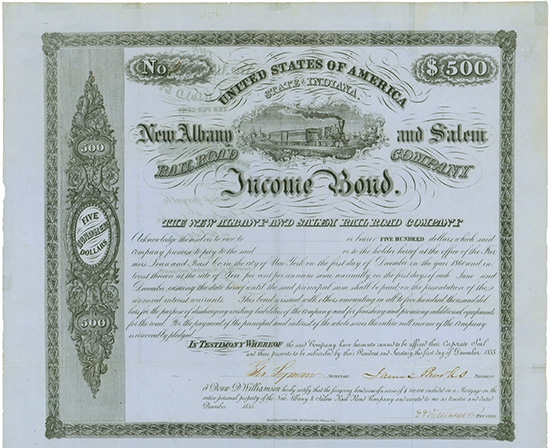 No.
$500
UNITED STATES OF AMERICA
STATE OF INDIANA
New Albany and Salem
RAIL ROAD COMPANY
Income Bond.
THE NEW ALBANY AND SALEM RAIL ROAD COMPANY
Acknowledge themselves to owe to or bearer FIVE HUNDRED dollars which said
Company promise to pay to the said or to the holder hereof at the office of the Far-
mers Loan and Trust Co in the city of New York on the first day of December in the year 18 and in-
terest thereon at the rate of per cent per annum semi annually on the first days of each June and
December ensuing the date hereof until the said principal sum shall be paid on the presentation of the
annexed interest warrants This bond is issued with others amounting in all to five hundred thousand dol-
lars for the purpose of discharging existing liabilities of the Company and of finishing and procuring additional equipments
for the road. For the payment of the principal and interest of the whole series the entire nett income of the Company
is pledged.
IN TESTIMONY WHEREOF the said Company have hereunto caused to be affixed their Corporate Seal
and these presents to be subscribed by their President and Secretary this first day of December 1855.
SECRETARY James Brooks PRESIDENT
I DOUW D. WILLIAMSON hereby certify that the foregoing bond is one of a series of included in a Mortgage on the
entire personal property of the New Albany & Salem Rail Road Company and executed to me as trustee and dated
December 1855.
TRUSTEE
500
FIVE
HUNDRED
DOLLARS
500